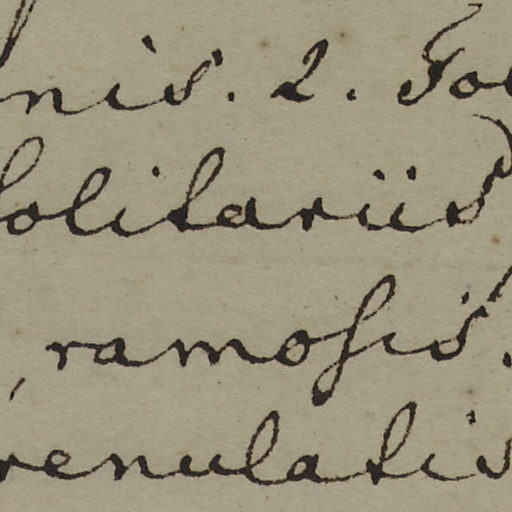 nis. 2. Fo
solitariis
, ramosis.
renulatis